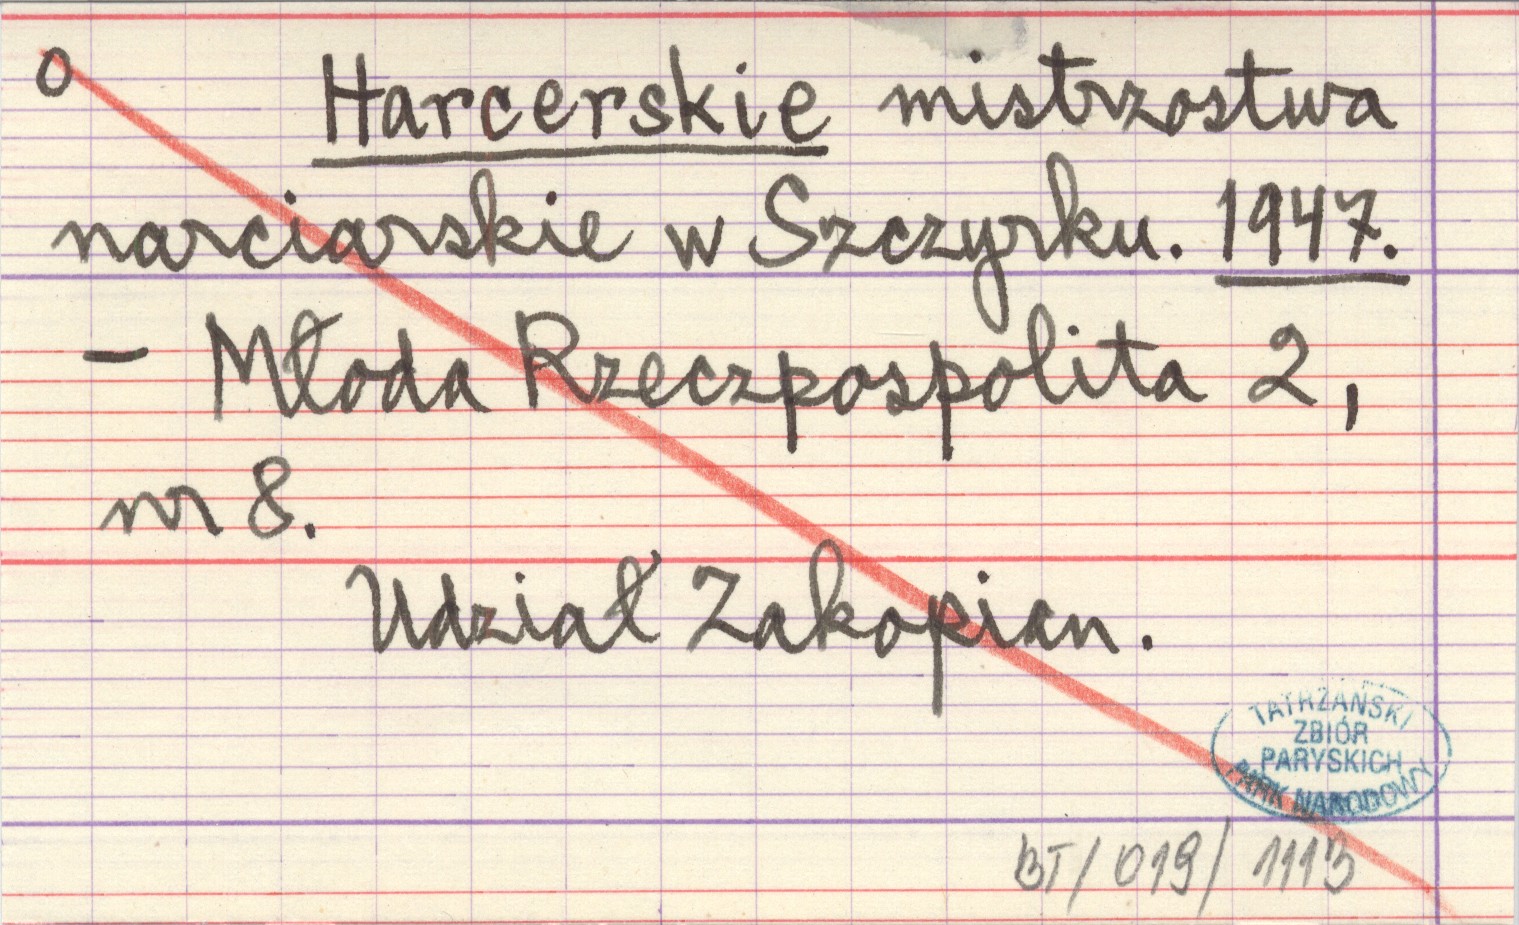 O
Harcerskie mistrzostwa
narciarskie w Szczyrku. 1947.
– Młoda Rzeczpospolita 2,
nr 8.
Udział Zakopian.
TATRZAŃSKI
ZBIÓR
PARYSKICH
PARK NARODOWY
BT/019/1113